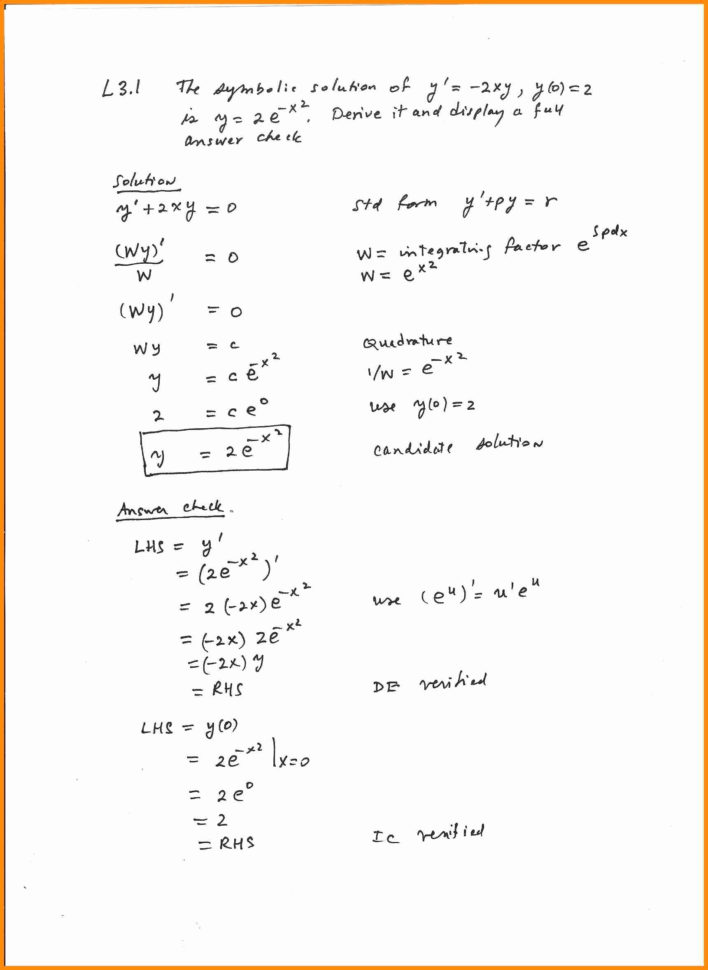 L3.1 The symbolic solution of y' = -2xy, y(0)=2
is y = 2e^{-x^2}. Derive it and display a full
answer check
Solution
y' + 2xy = 0 Std form y'+py = r
(Wy)'/W = 0 W = integrating factor e^{∫pdx}
W = e^{x^2}
(Wy)' = 0
Wy = c Quadrature
y = c e^{-x^2} 1/W = e^{-x^2}
2 = c e^0 use y(0)=2
y = 2e^{-x^2} candidate solution
Answer check.
LHS = y'
= (2e^{-x^2})'
= 2(-2x)e^{-x^2} use (e^u)' = u'e^u
= (-2x) 2e^{-x^2}
= (-2x) y
= RHS DE verified
LHS = y(0)
= 2e^{-x^2} |x=0
= 2e^0
= 2
= RHS IC verified